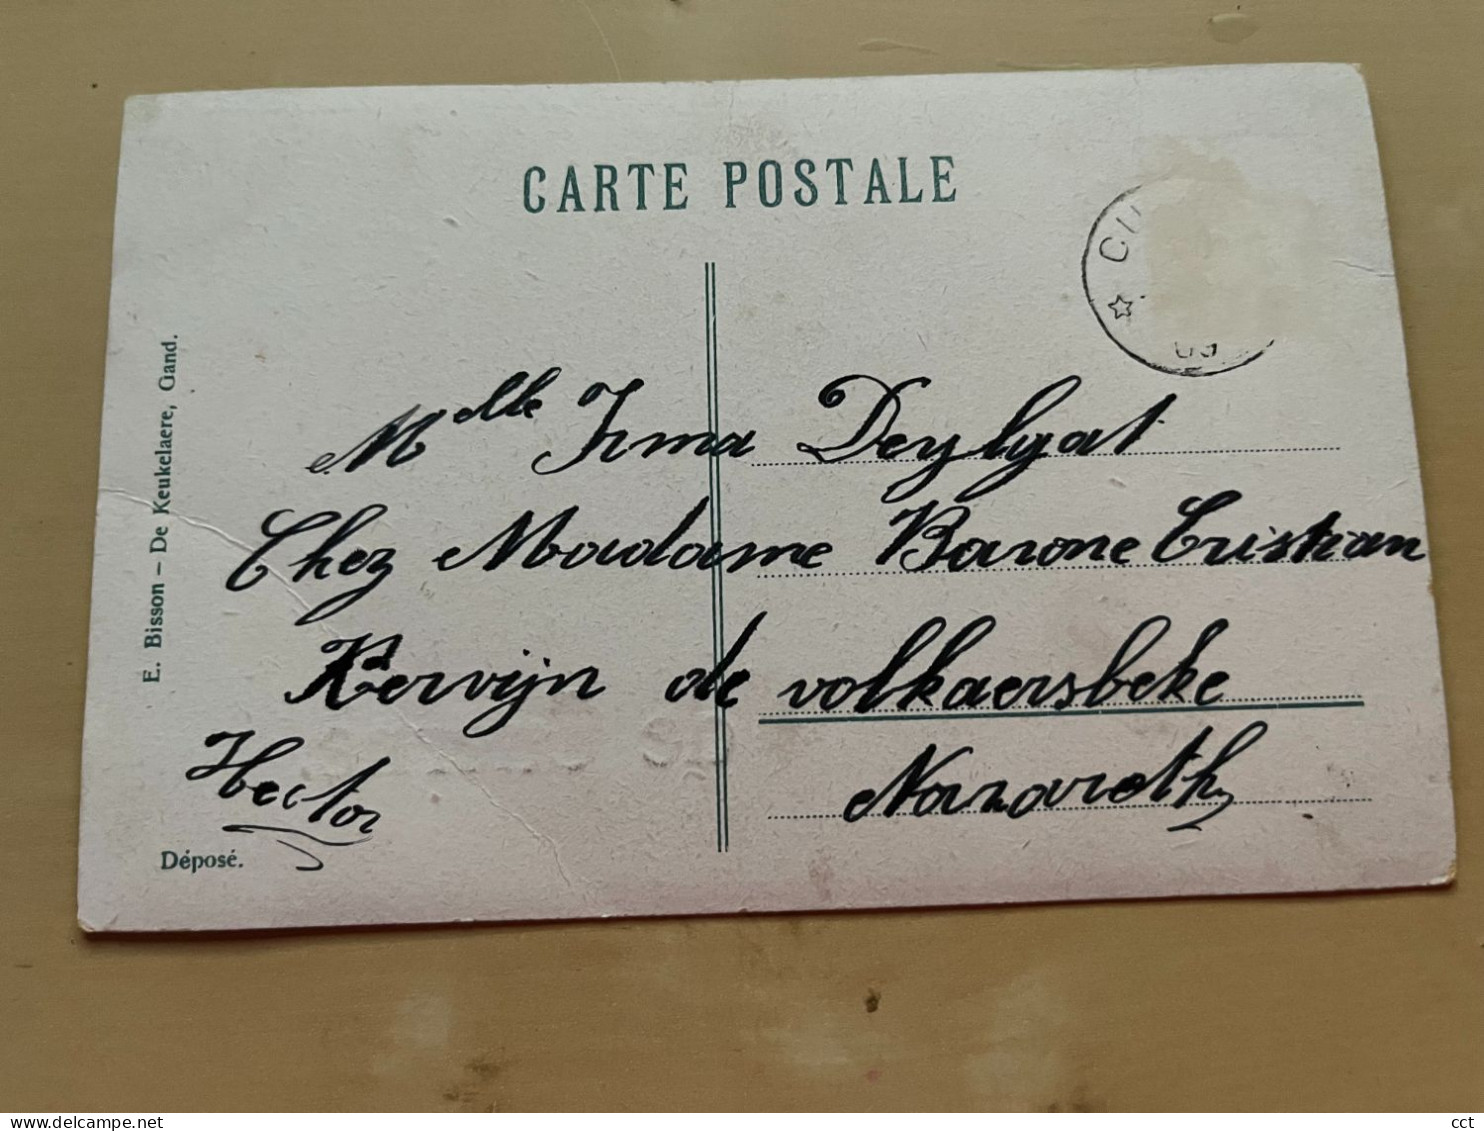 CARTE POSTALE
E. Bisson – De Keukelaere, Gand.
Melle Irma Deylgat
Chez Madame Barone Cristian
Kervijn de volkaersbeke
Nazareth
Hector
Déposé.
cct